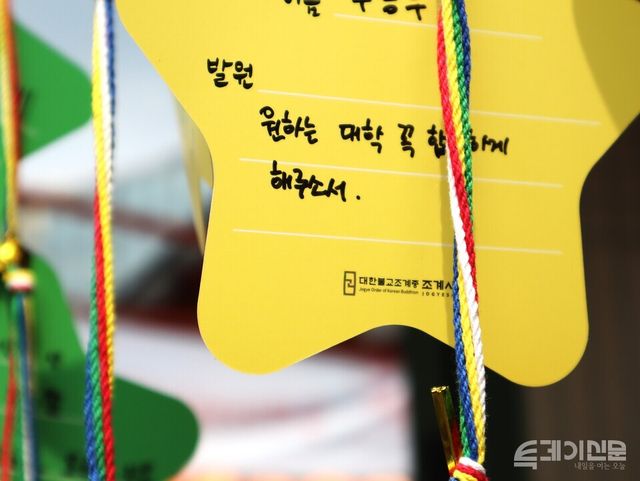 이름
발원
원하는 대학 꼭 합 하게
해주소서.
대한불교조계종 조계사
Jogye Order of Korean Buddhism JOGYES
투데이신문
내일을 여는 오늘